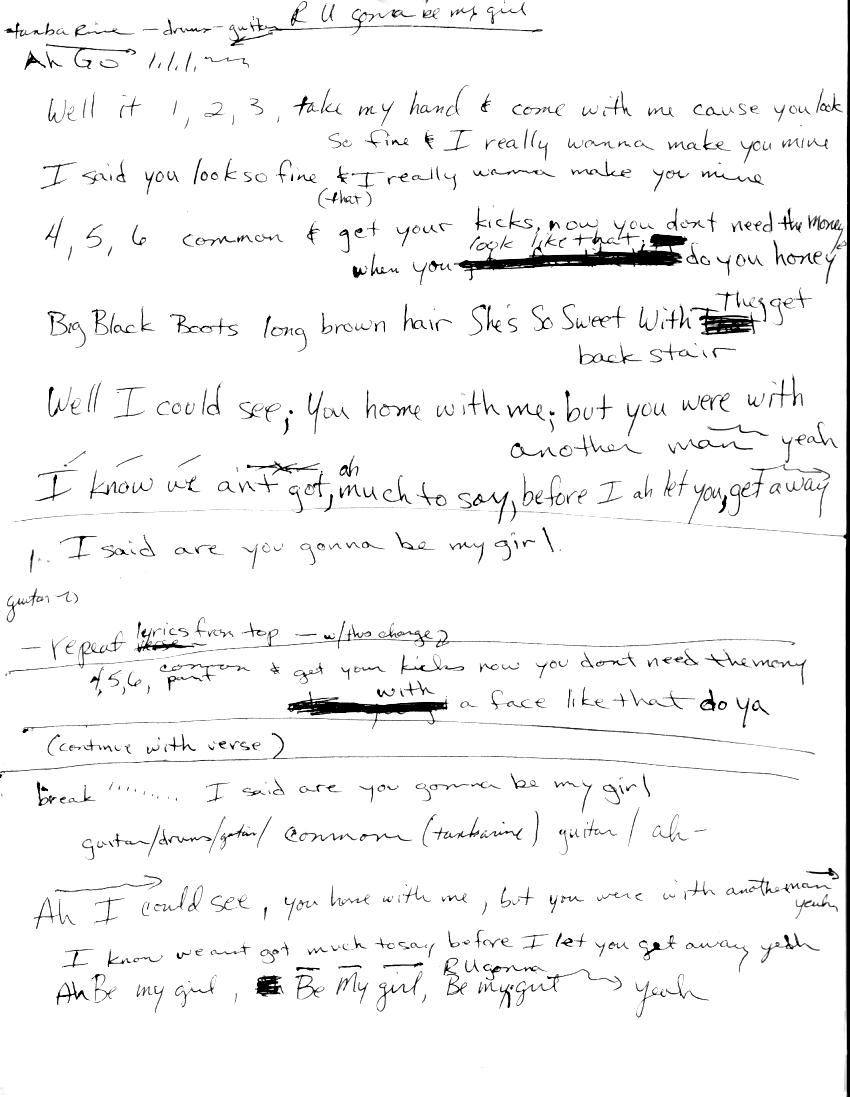 R U gonna be my girl
tambarine - drums - guitar
Ah GO 1,1,1,
Well it 1, 2, 3, take my hand & come with me cause you look
so fine & I really wanna make you mine
I said you look so fine & I really wanna make you mine
(that)
4, 5, 6 common & get your kicks, now you dont need the money
look like that,
when you do you honey
Big Black Boots long brown hair She's So Sweet With They get
back stair
Well I could see; You home with me; but you were with
another man yeah
ah
I know we aint got, much to say, before I ah let you, get away
1.. I said are you gonna be my girl.
guitar
- repeat lyrics from top - w/this change
4,5,6, common & get your kicks now you dont need the mony
with a face like that do ya
(continue with verse)
break ......... I said are you gonna be my girl
guitar/drums/guitar/ common (tambarine) guitar / ah -
Ah I could see, you home with me, but you were with another man
yeah
I know we aint got much to say before I let you get away yeah
R U gonna
Ah Be my girl, Be My girl, Be my girl yeah